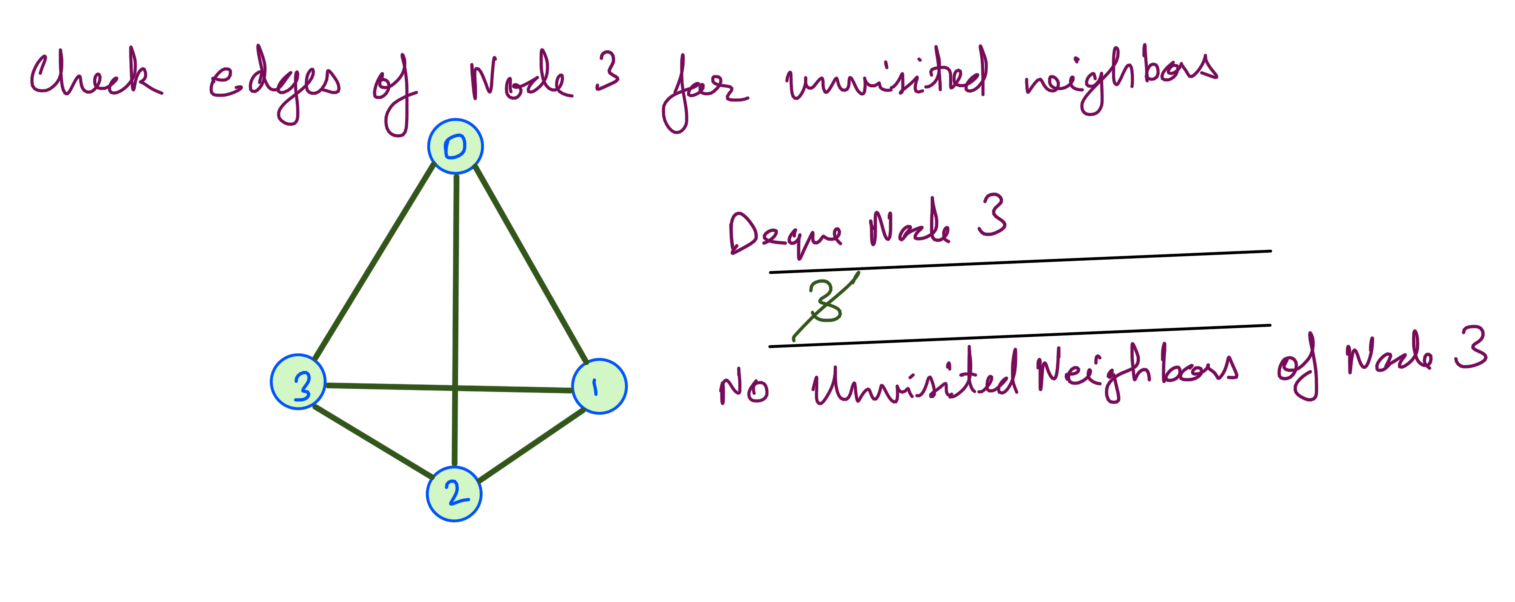 Check edges of Node 3 for unvisited neighbors
0
Deque Node 3
3
3
1
No Unvisited Neighbors of Node 3
2